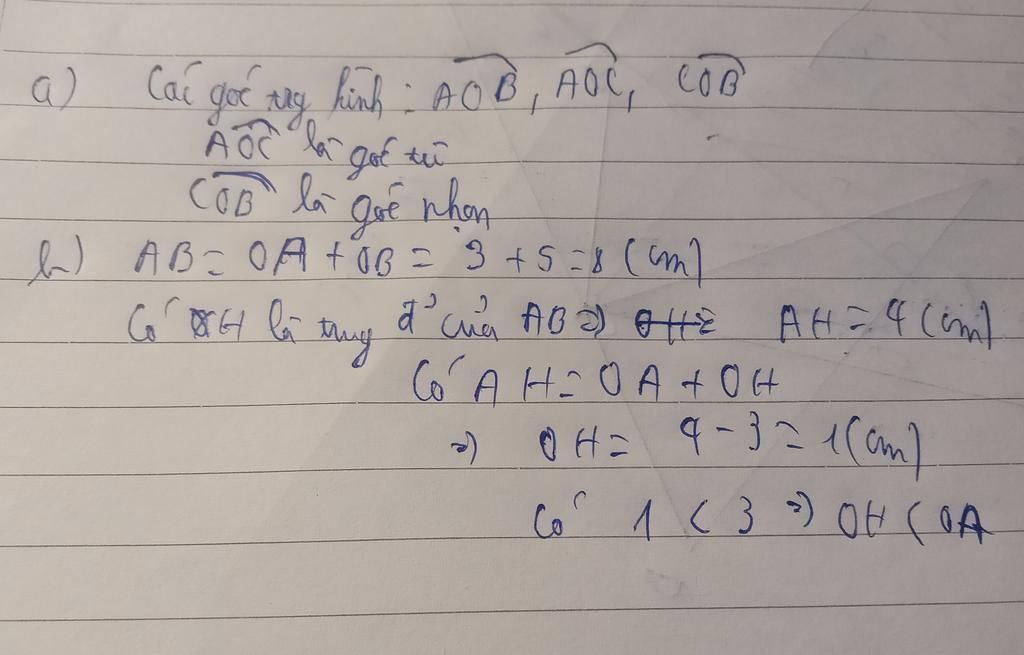 a) Các góc trg hình : AOB, AOC, COB
AOC là góc tù
COB là góc nhọn
b) AB = OA + OB = 3 + 5 = 8 (cm)
Có H là trung đ' của AB => AH = 4 (cm)
Có AH = OA + OH
=> OH = 4 - 3 = 1 (cm)
Có 1 < 3 => OH < OA